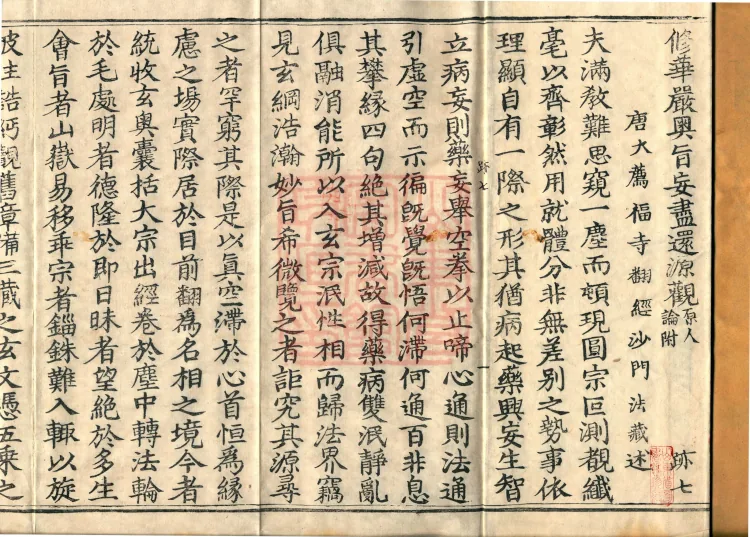 修華嚴奧旨妄盡還源觀 原人論附 跡七
唐大薦福寺翻經沙門法藏述
夫滿敎難思窺一塵而頓現圓宗叵測覩纖
毫以齊彰然用就體分非無差別之勢事依
理顯自有一際之形其猶病起藥興妄生智
跡七 一
立病妄則藥妄舉空拳以止啼心通則法通
引虛空而示徧旣覺旣悟何滯何通百非息
其攀緣四句絕其增減故得藥病雙泯靜亂
俱融消能所以入玄宗泯性相而歸法界竊
見玄綱浩瀚妙旨希微覽之者詎究其源尋
之者罕窮其際是以眞空滯於心首恒爲緣
慮之場實際居於目前翻爲名相之境今者
統收玄奧囊括大宗出經卷於塵中轉法輪
於毛處明者德隆於即日昧者望絕於多生
會旨者山嶽易移乖宗者錙銖難入輙以旋
披往誥覩舊章備三藏之玄文憑五乘之